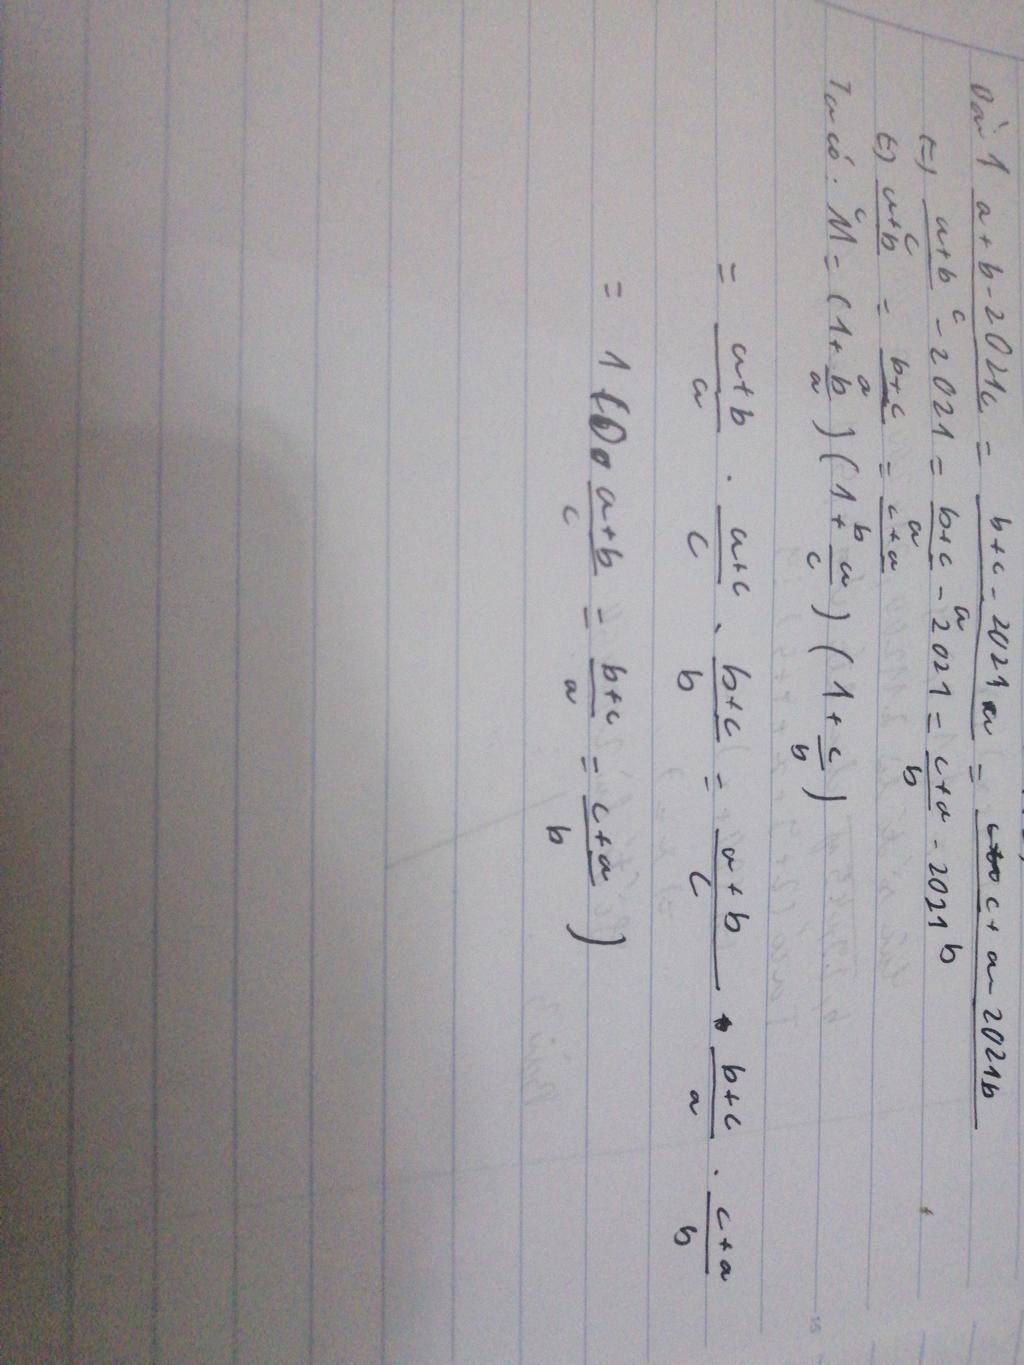 Bài 1 a+b-2021c/c = b+c-2021a/a = c+a-2021b/b
(=) a+b/c - 2021 = b+c/a - 2021 = c+a/b - 2021
(=) a+b/c = b+c/a = c+a/b
Ta có: M = (1+b/a)(1+a/c)(1+c/b)
= a+b/a . a+c/c . b+c/b = a+b/c . b+c/a . c+a/b
= 1 (Do a+b/c = b+c/a = c+a/b)